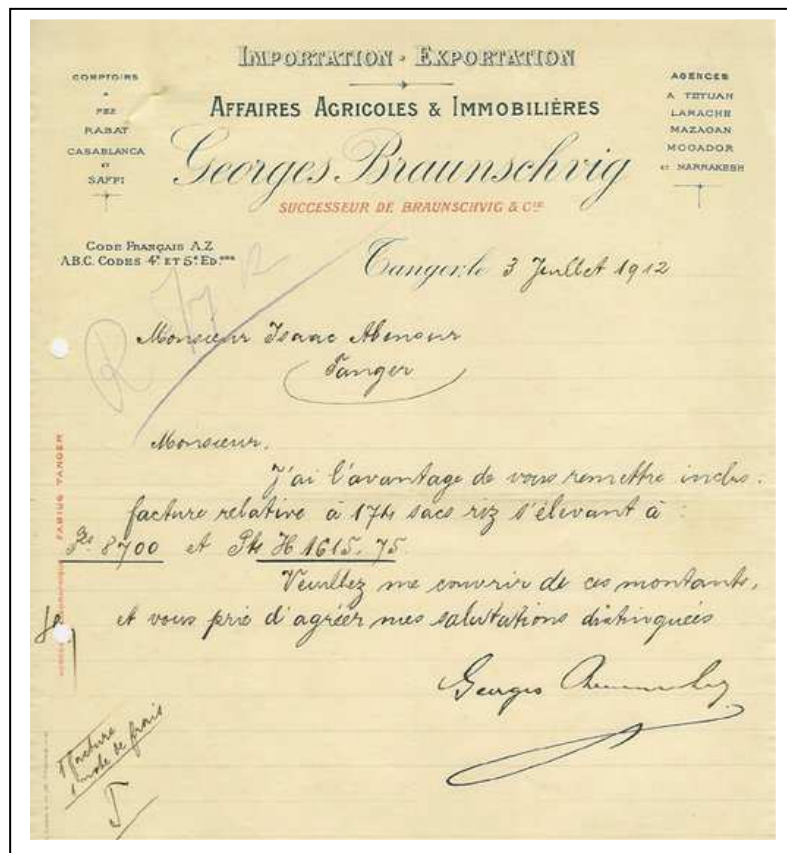 IMPORTATION - EXPORTATION
AFFAIRES AGRICOLES & IMMOBILIÈRES
Georges Braunschvig
SUCCESSEUR DE BRAUNSCHVIG & CIE
COMPTOIRS
A
FEZ
RABAT
CASABLANCA
ET
SAFFI
AGENCES
A TETUAN
LARACHE
MAZAGAN
MOGADOR
ET MARRAKESH
CODE FRANÇAIS A.Z
A.B.C. CODES 4e ET 5e ED.ons
Tanger, le 3 Juillet 1912
R
Monsieur Isaac Abensur
Tanger
Monsieur,
J'ai l'avantage de vous remettre inclus
facture relative à 174 sacs riz s'élevant à :
Fcs 8700 et Pts H 1615.75
Veuillez me couvrir de ces montants,
et vous prie d'agréer mes salutations distinguées
Georges
1 facture
1 note de frais
FABIUS TANGER